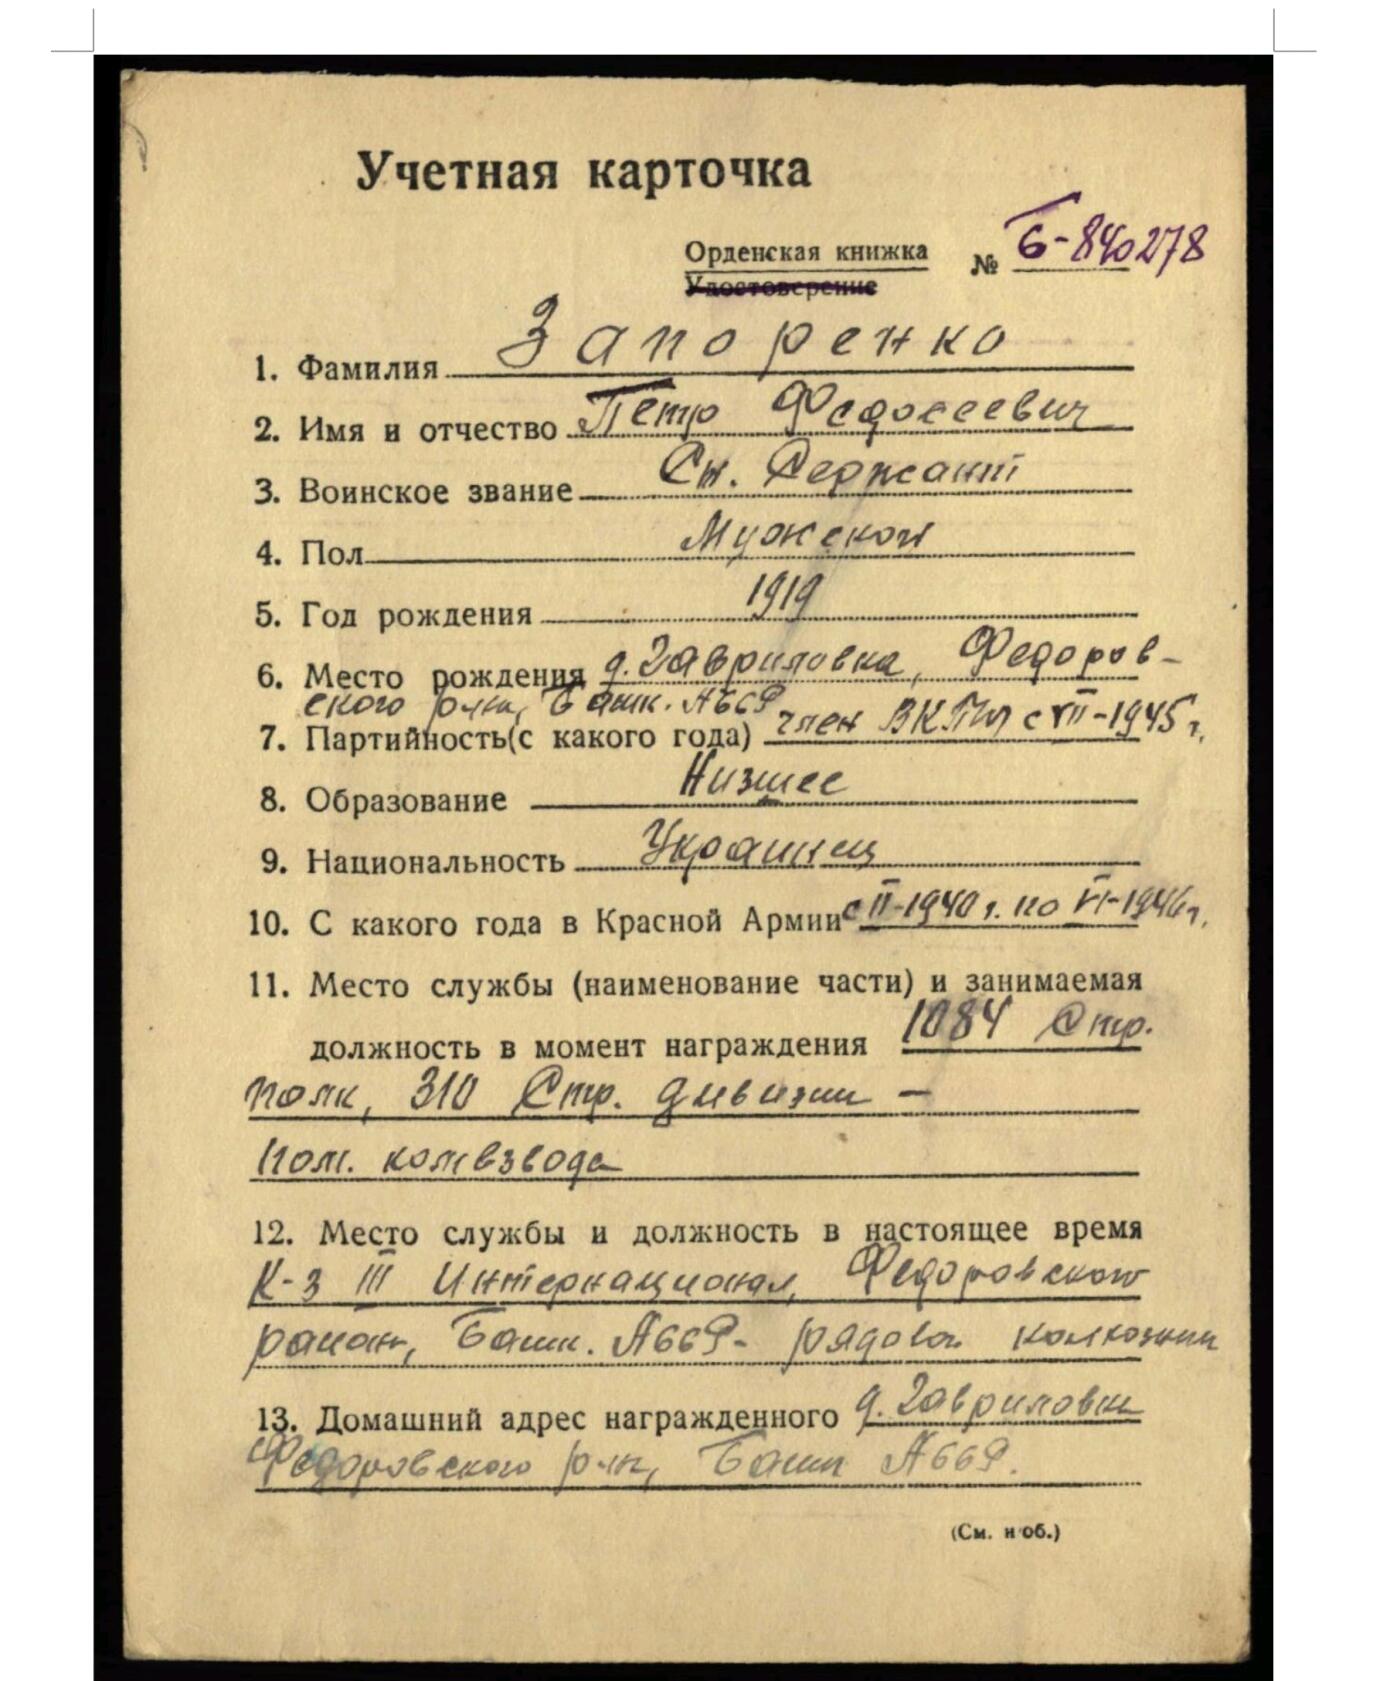 Учетная карточка
Орденская книжка № Б-840278
Удостоверение
1. Фамилия Запоренко
2. Имя и отчество Петр Федосеевич
3. Воинское звание Ст. Сержант
4. Пол Мужской
5. Год рождения 1919
6. Место рождения д. Гавриловка, Федоров-
ского р-на, Башк. АССР
7. Партийность (с какого года) член ВКП(б) с VII-1945 г.
8. Образование Низшее
9. Национальность Украинец
10. С какого года в Красной Армии с II-1940 г. по VI-1946 г.
11. Место службы (наименование части) и занимаемая
должность в момент награждения 1084 Стр.
полк, 310 Стр. дивизии –
пом. комвзвода
12. Место службы и должность в настоящее время
К-з III Интернационал, Федоровского
район, Башк. АССР - рядовой колхозник
13. Домашний адрес награжденного д. Гавриловка
Федоровского р-на, Башк АССР.
(См. н об.)